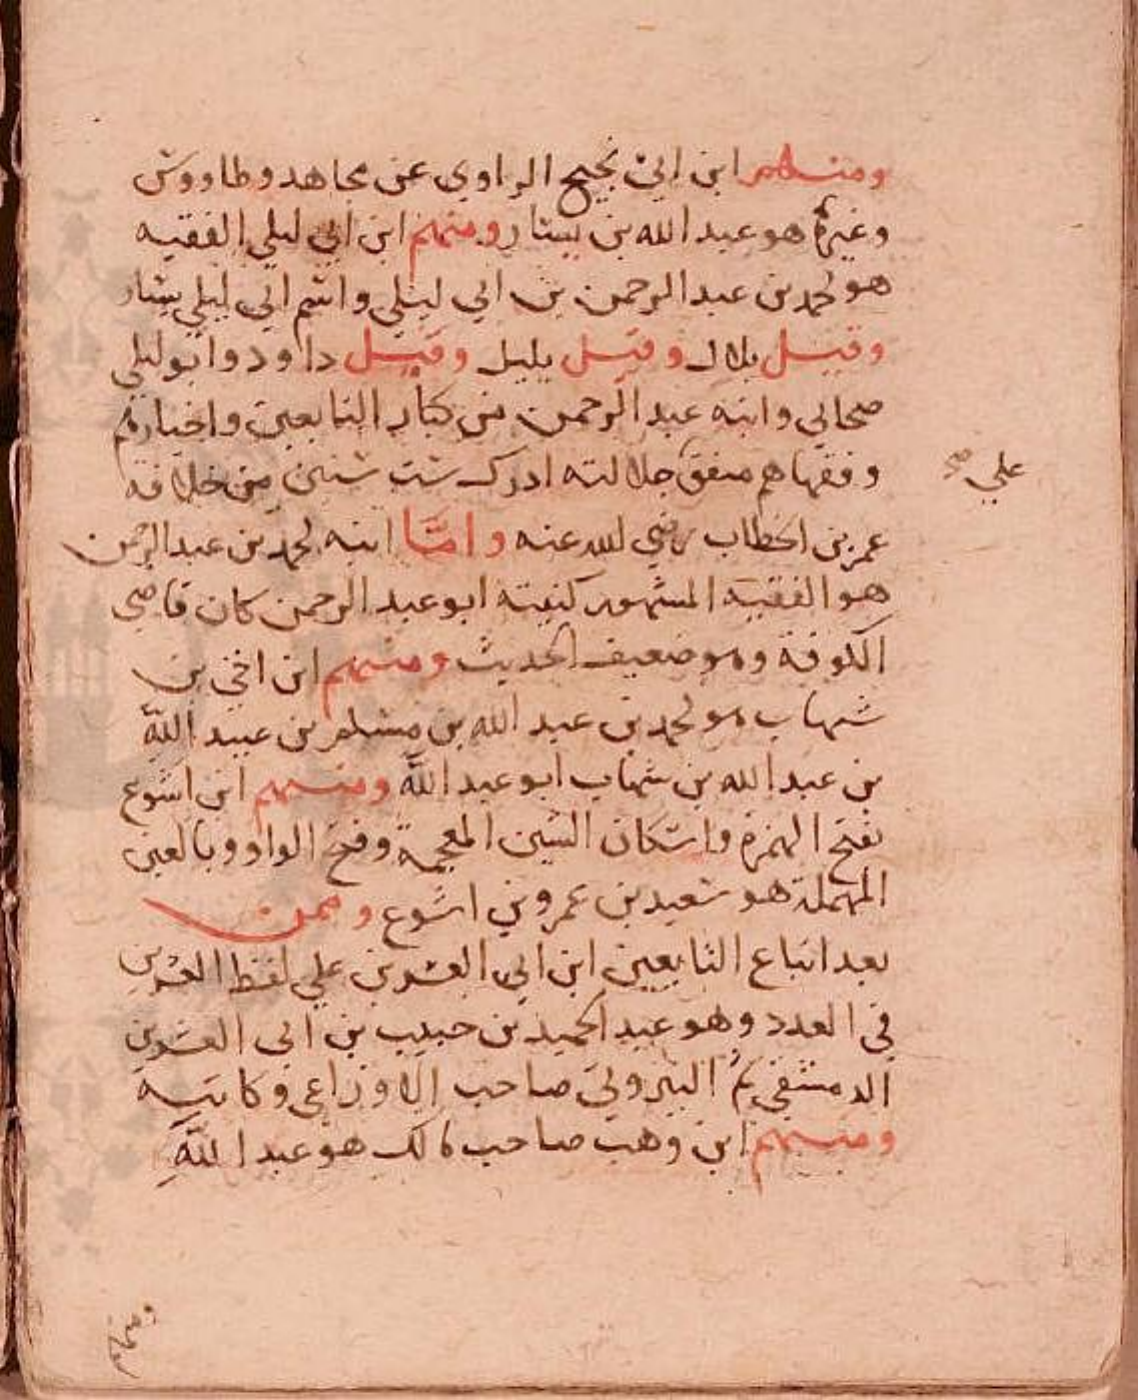 ومنهم ابن ابي نجيح الراوي عن مجاهد وطاووس
وغيره هو عبد الله بن يسار ومنهم ابن ابي ليلي الفقيه
هو محمد بن عبد الرحمن بن ابي ليلي واسم ابي ليلي يسار
وقيل بلال وقيل بليل وقيل داود وابو ليلي
صحابي وابنه عبد الرحمن من كبار التابعين واخيارهم
وفقهاهم متفق جلالته ادرك ست سنين من خلافة
علي صح
عمر بن الخطاب رضي الله عنه واما ابنه محمد بن عبد الرحمن
هو الفقيه المشهور كنيته ابو عبد الرحمن كان قاضي
الكوفة وهو ضعيف الحديث ومنهم ابن اخي بن
شهاب هو محمد بن عبد الله بن مسلم بن عبيد الله
بن عبد الله بن شهاب ابو عبد الله ومنهم ابن اشوع
بفتح الهمزة واسكان الشين المعجمة وفتح الواو وبالعين
المهملة هو سعيد بن عمرو بن اشوع وممن
بعد اتباع التابعين ابن ابي العشرين علي لفظ العشرين
في العدد وهو عبد الحميد بن حبيب بن ابي العشرين
الدمشقي ثم البيروتي صاحب الاوزاعي وكاتبه
ومنهم ابن وهب صاحب مالك هو عبد الله